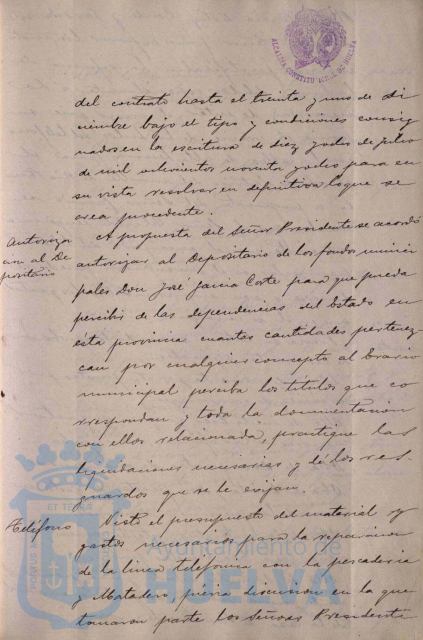 ALCALDIA CONSTITUCIONAL DE HUELVA
del contrato hasta el treinta y uno de Di
ciembre bajo el tipo y condiciones consig
nados en la escritura de diez y ocho de Julio
de mil ochocientos noventa y ocho para en
su vista resolver en definitiva lo que se
crea procedente.
Autorizar
al De
positario
A propuesta del Señor Presidente se acordó
autorizar al Depositario de los fondos munici
pales Don José García Corte para que pueda
percibir de las dependencias del Estado en
ésta provincia cuantas cantidades pertenez-
can por cualquier concepto al Erario
municipal perciba los titulos que co
rrespondan y toda la documentacion
con ellos relacionada, practique las
liquidaciones necesarias y dé los res-
guardos que se le exijan.
Teléfono
Visto el presupuesto del material y
gastos necesarios para la reparacion
de la linea telefonica con la pescaderia
y Matadero, previa discusion en la que
tomaron parte los Señores Presidente
Ayuntamiento de
HUELVA